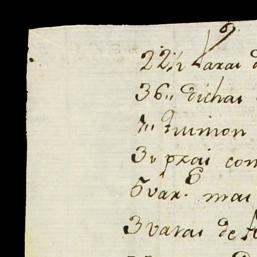 22½ Varas d
36,, dichas
7,, Quimon
3,, pzas con
5 var.s mas
3 varas de